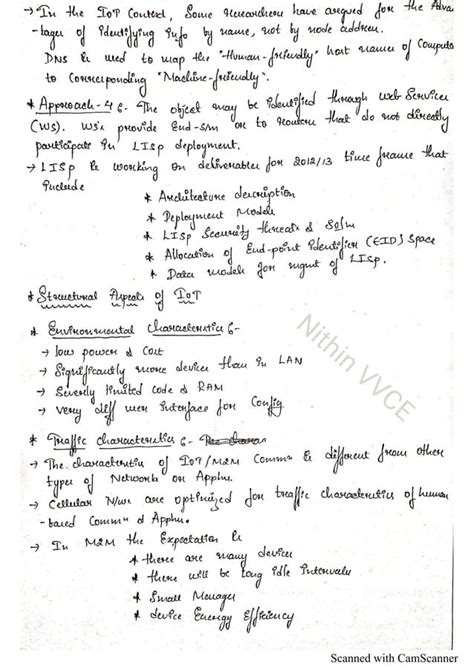 → In the IoT Context, Some researchers have argued for the Adva
-tages of identifying info by name, not by node address.
DNS is used to map the "Human-friendly" host names of Computer
to corresponding "Machine-friendly".
* Approach-4 :- The object may be identified through web Services
(WS). WS's provide End-s/m or to routers that do not directly
participate in LISP deployment.
→ LISP is working on deliverables for 2012/13 time frame that
include
* Architecture description
* Deployment Models
* LISP Security threats & Soln
* Allocation of End-point Identifier (EID) Space
* Data models for mgmt of LISP.
* Structural Aspects of IoT
* Environmental characteristics :-
→ low power & Cost
→ Significantly more devices than in LAN
→ Severly limited code & RAM
→ Very diff user interface for Config
* Traffic characteristics :-
→ The characteristics of IoT/M2M Commn is different from other
types of Networks or Appln.
→ Cellular N/ws are optimized for traffic characteristics of human
-based Commn & Appln.
→ In M2M the Expectation is
* there are many devices
* there will be long idle Intervals
* Small Messages
* device Energy Efficiency
Nithin VVCE
Scanned with CamScanner